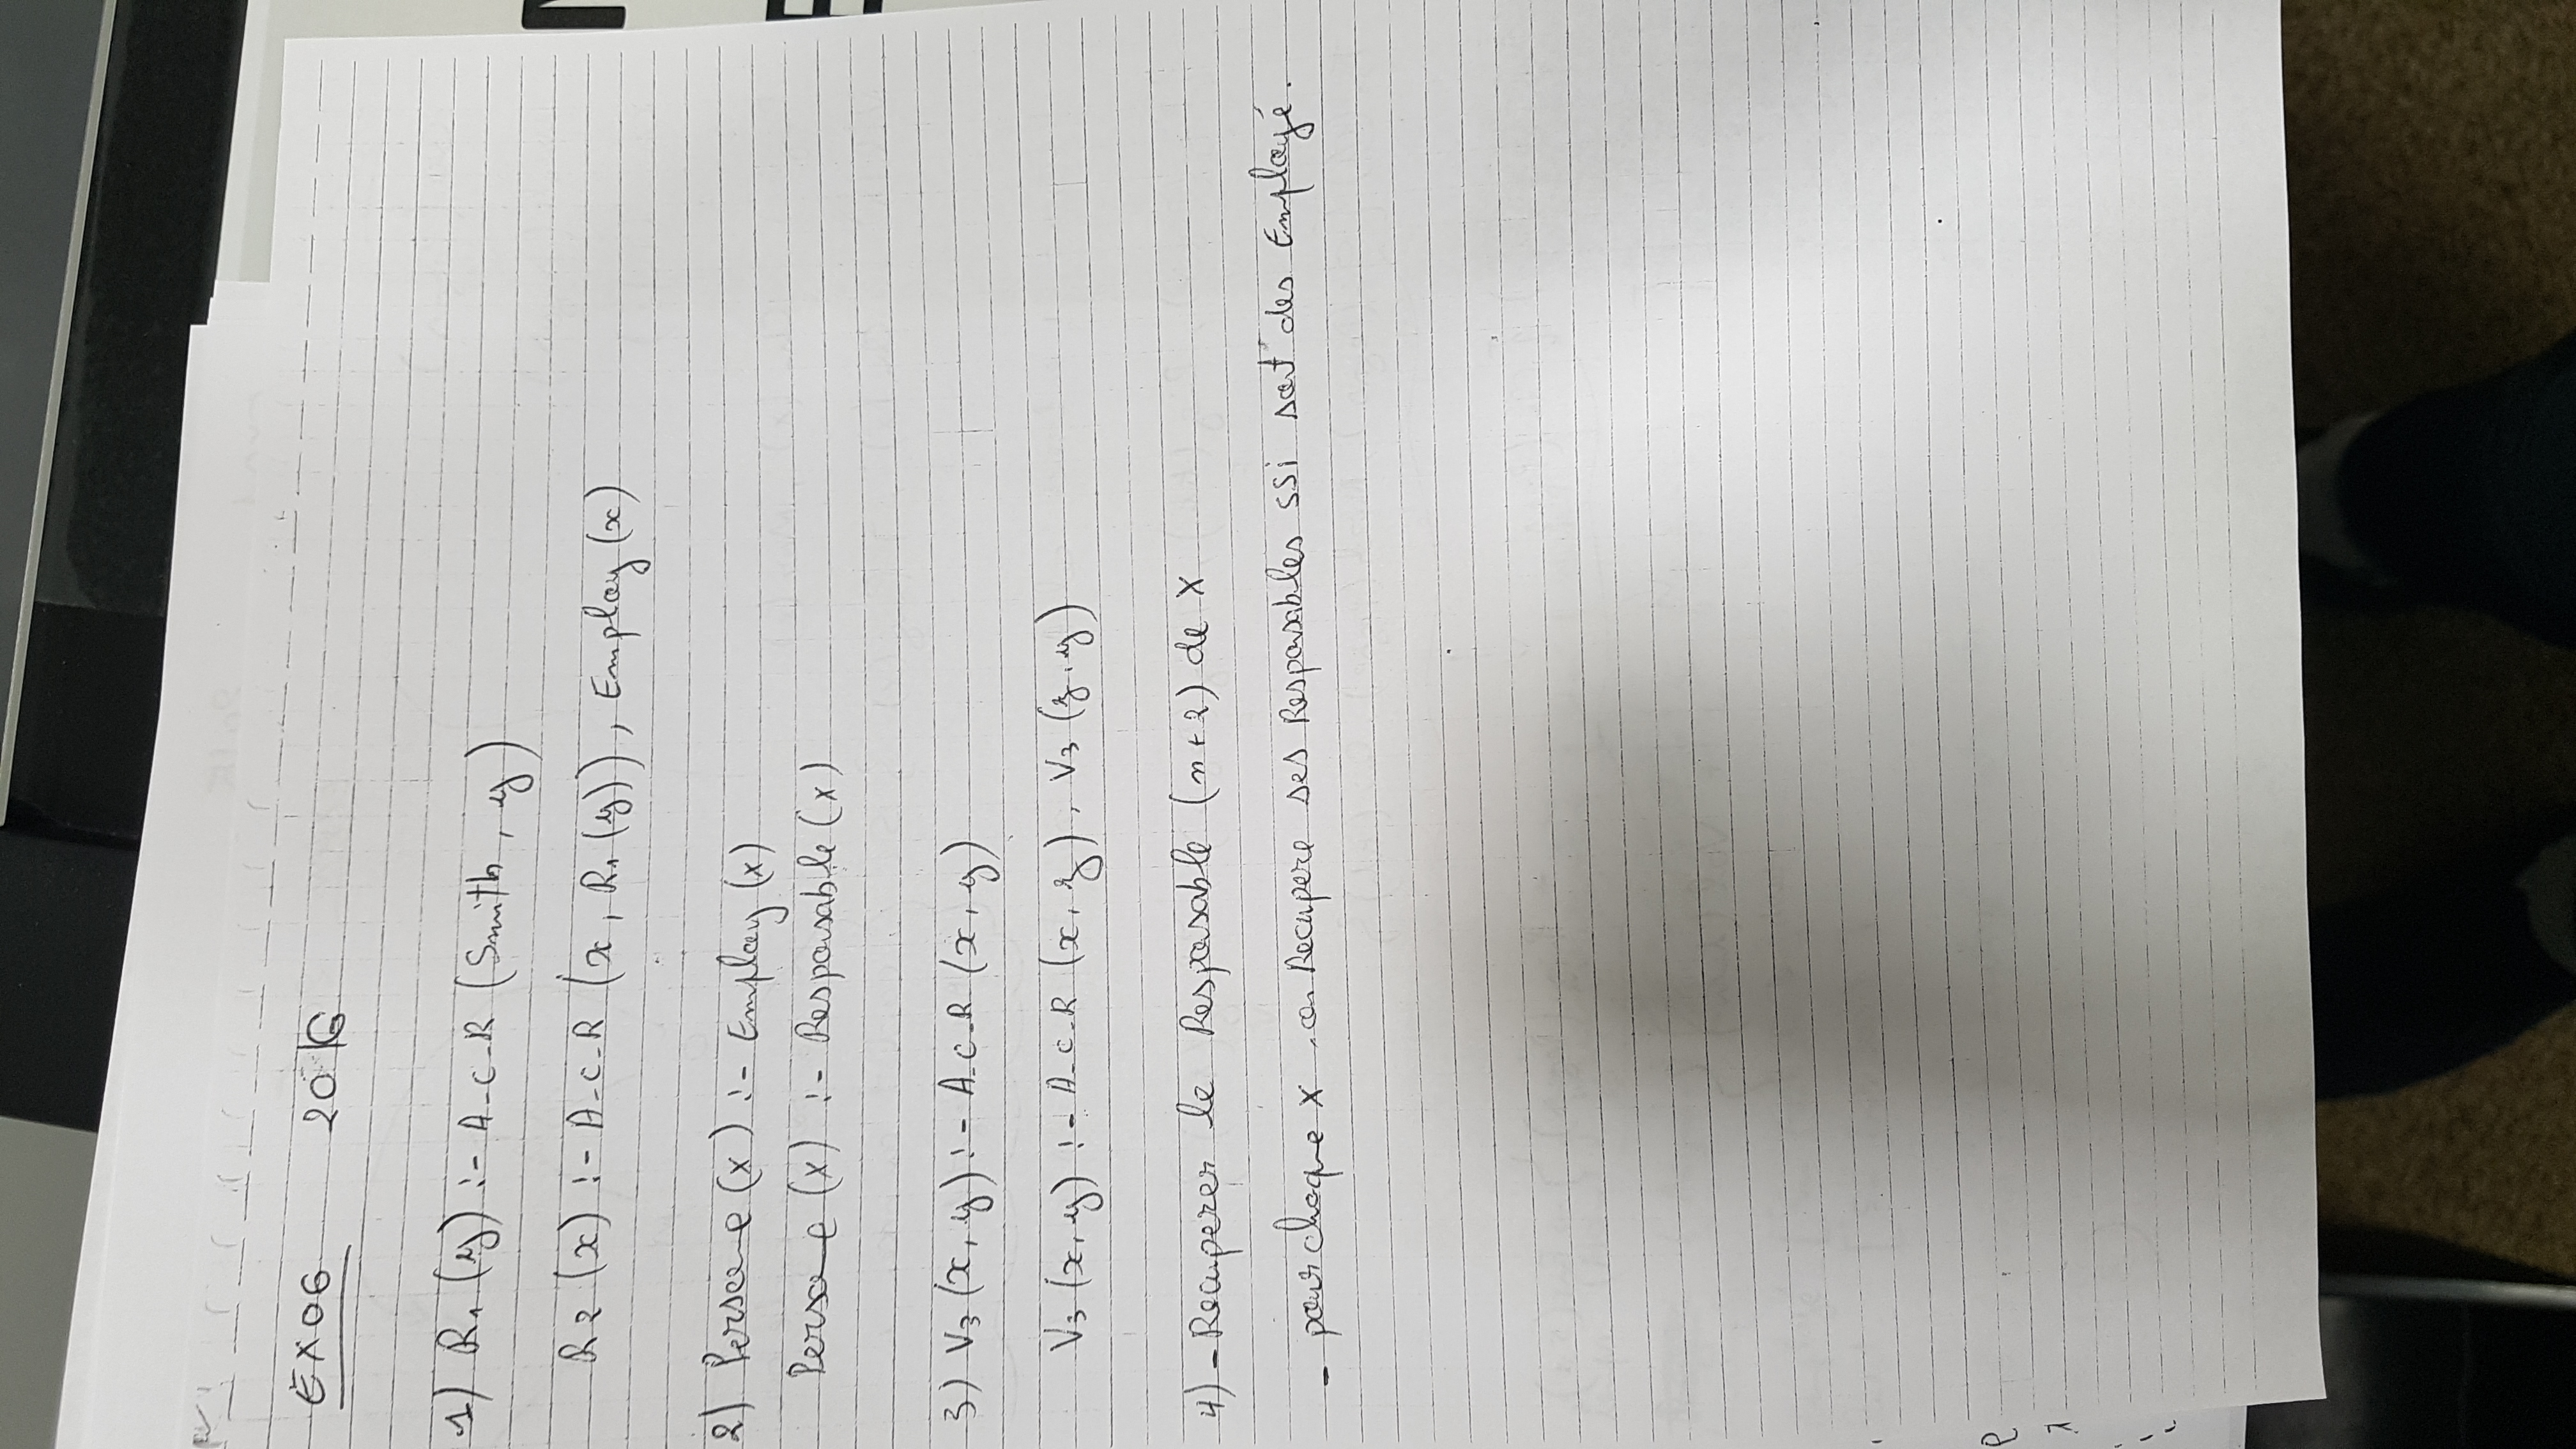 EX06 2016
1) R1 (y) :- A-C-R (Smith, y)
R2 (x) :- A-C-R (x, R1 (y)), Employ (x)
2) Persone (x) :- Employ (x)
Persone (x) :- Responsable (x)
3) V3 (x, y) :- A-C-R (x, y)
V3 (x, y) :- A-C-R (x, z), V3 (z, y)
4) - Recuperer le Responsable (n+2) de X
- pour chaque X, on Recupere ses Responsables ssi sont des Employé.